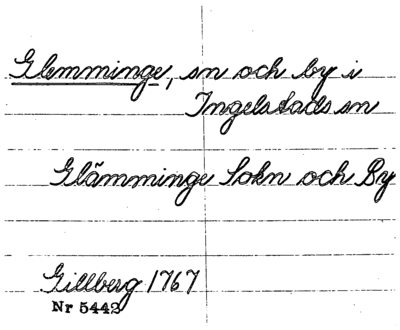 Glemminge, sn och by i
Ingelstads sn
Glämminge Sokn och By
Gillberg 1767
Nr 5442